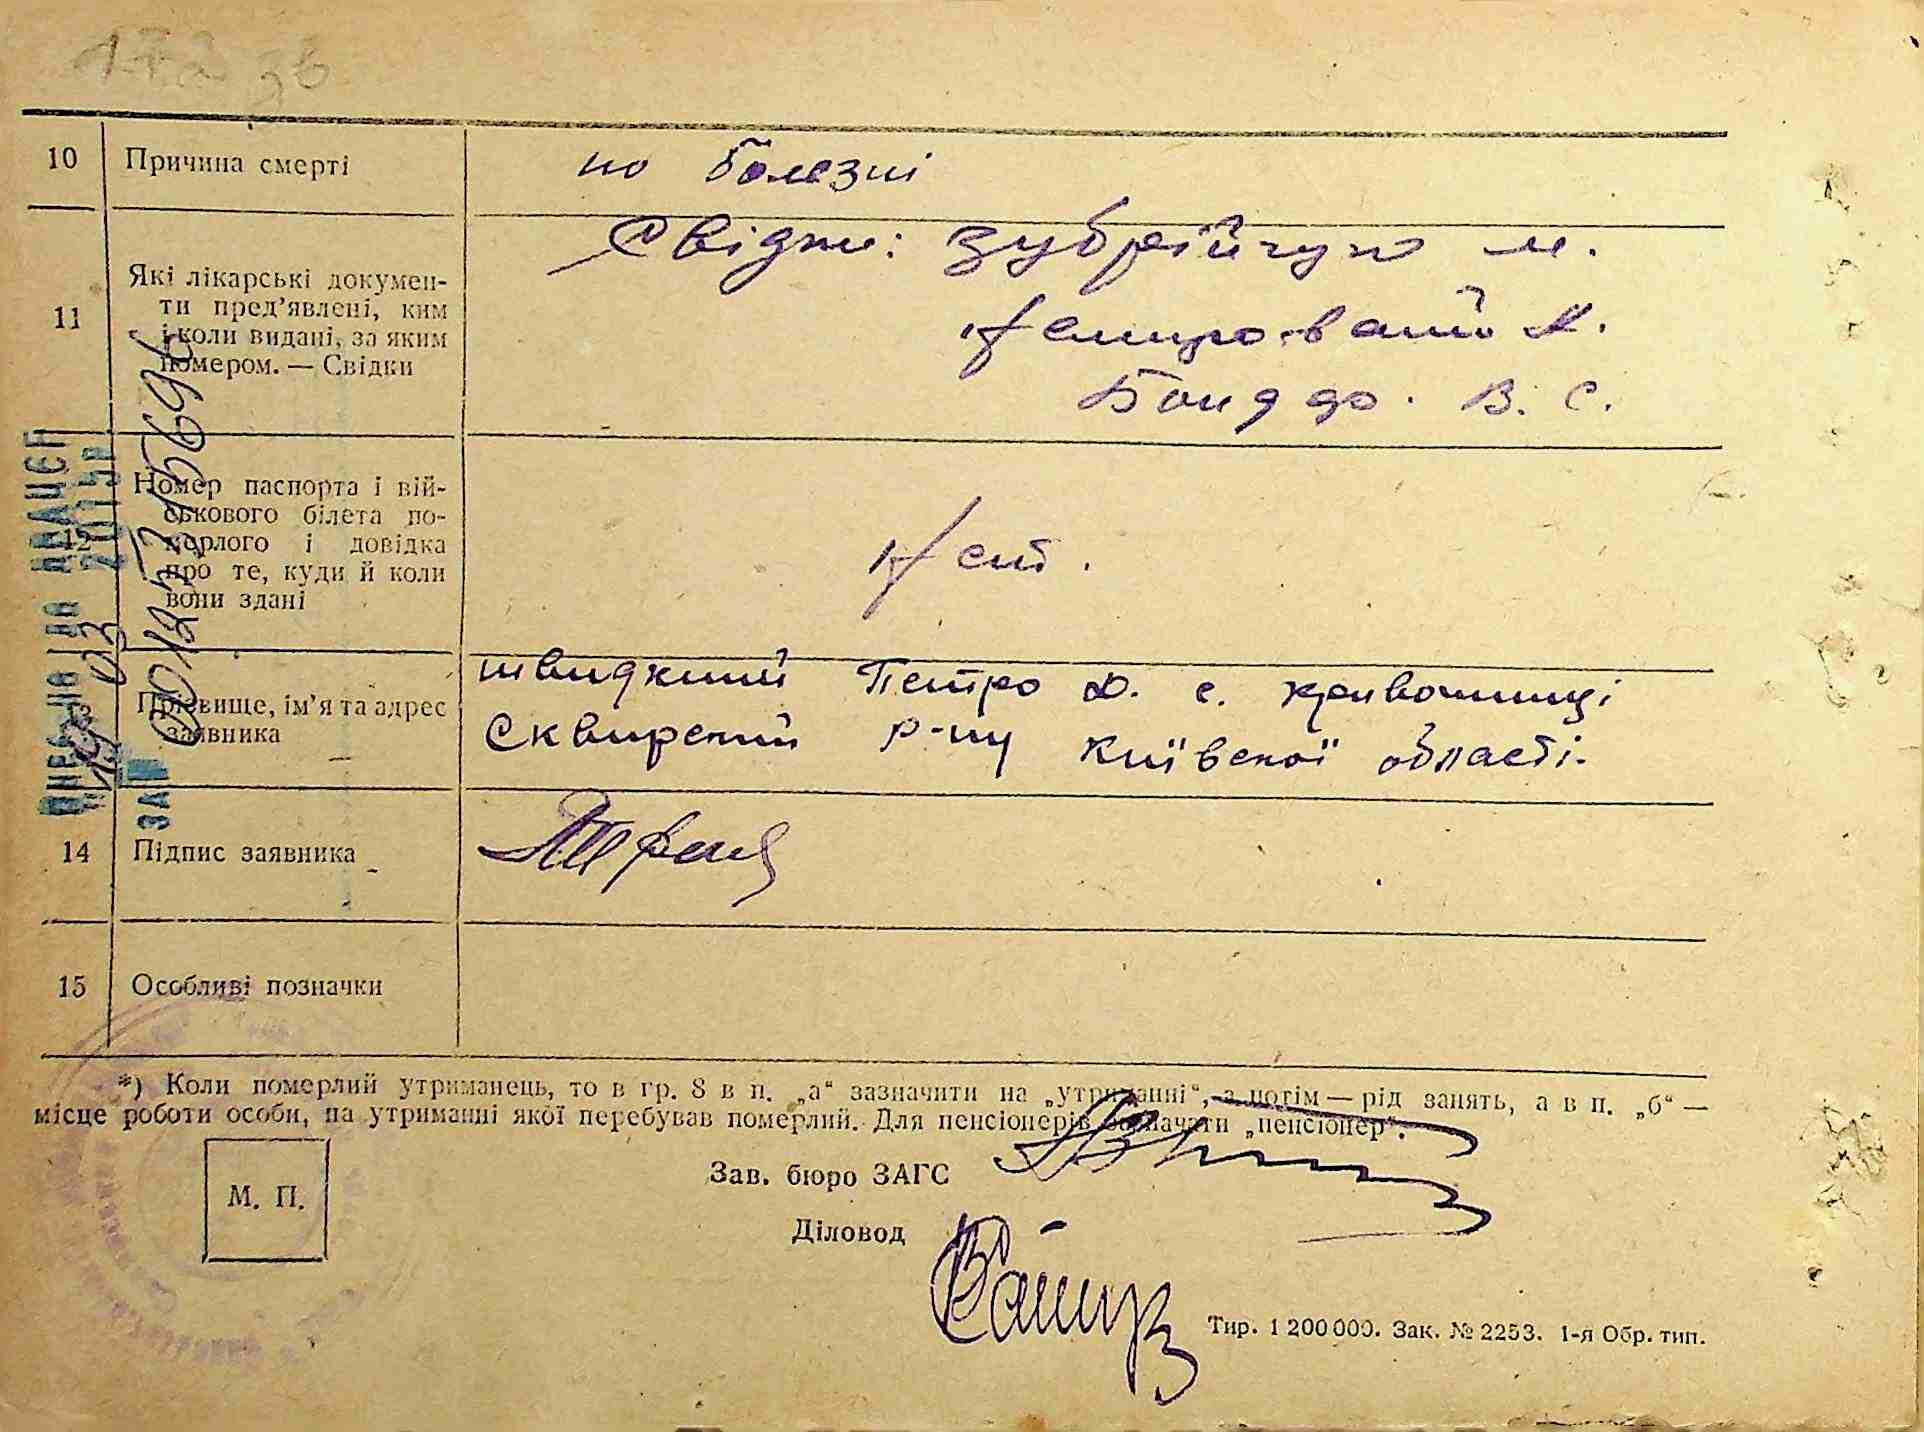 10 Причина смерті по болезні
11 Які лікарські докумен-
ти пред’явлені, ким
і коли видані, за яким
номером. — Свідки
Свідки: Зубрійчук М.
Бондар. В. С.
12 Номер паспорта і вій-
ськового білета по-
мерлого і довідка
про те, куди й коли
вони здані
Нет.
13 Прізвище, ім’я та адрес
заявника
Швидкий Петро Д. с. Кривошиїнці
Сквирский р-ну Київської області.
14 Підпис заявника
15 Особливі позначки
*) Коли померлий утриманець, то в гр. 8 в п. „а“ зазначити на „утриманні“, а потім — рід занять, а в п. „б“ —
місце роботи особи, на утриманні якої перебував померлий. Для пенсіонерів зазначати „пенсіонер“.
М. П.
Зав. бюро ЗАГС
Діловод
Тир. 1 200 000. Зак. № 2253. 1-я Обр. тип.